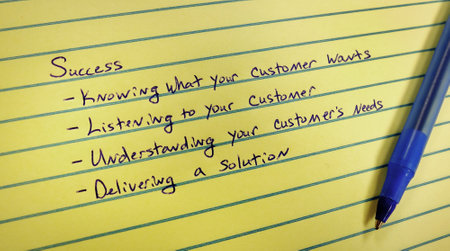 Success
- Knowing what your customer wants
- Listening to your customer
- Understanding your customer's needs
- Delivering a solution